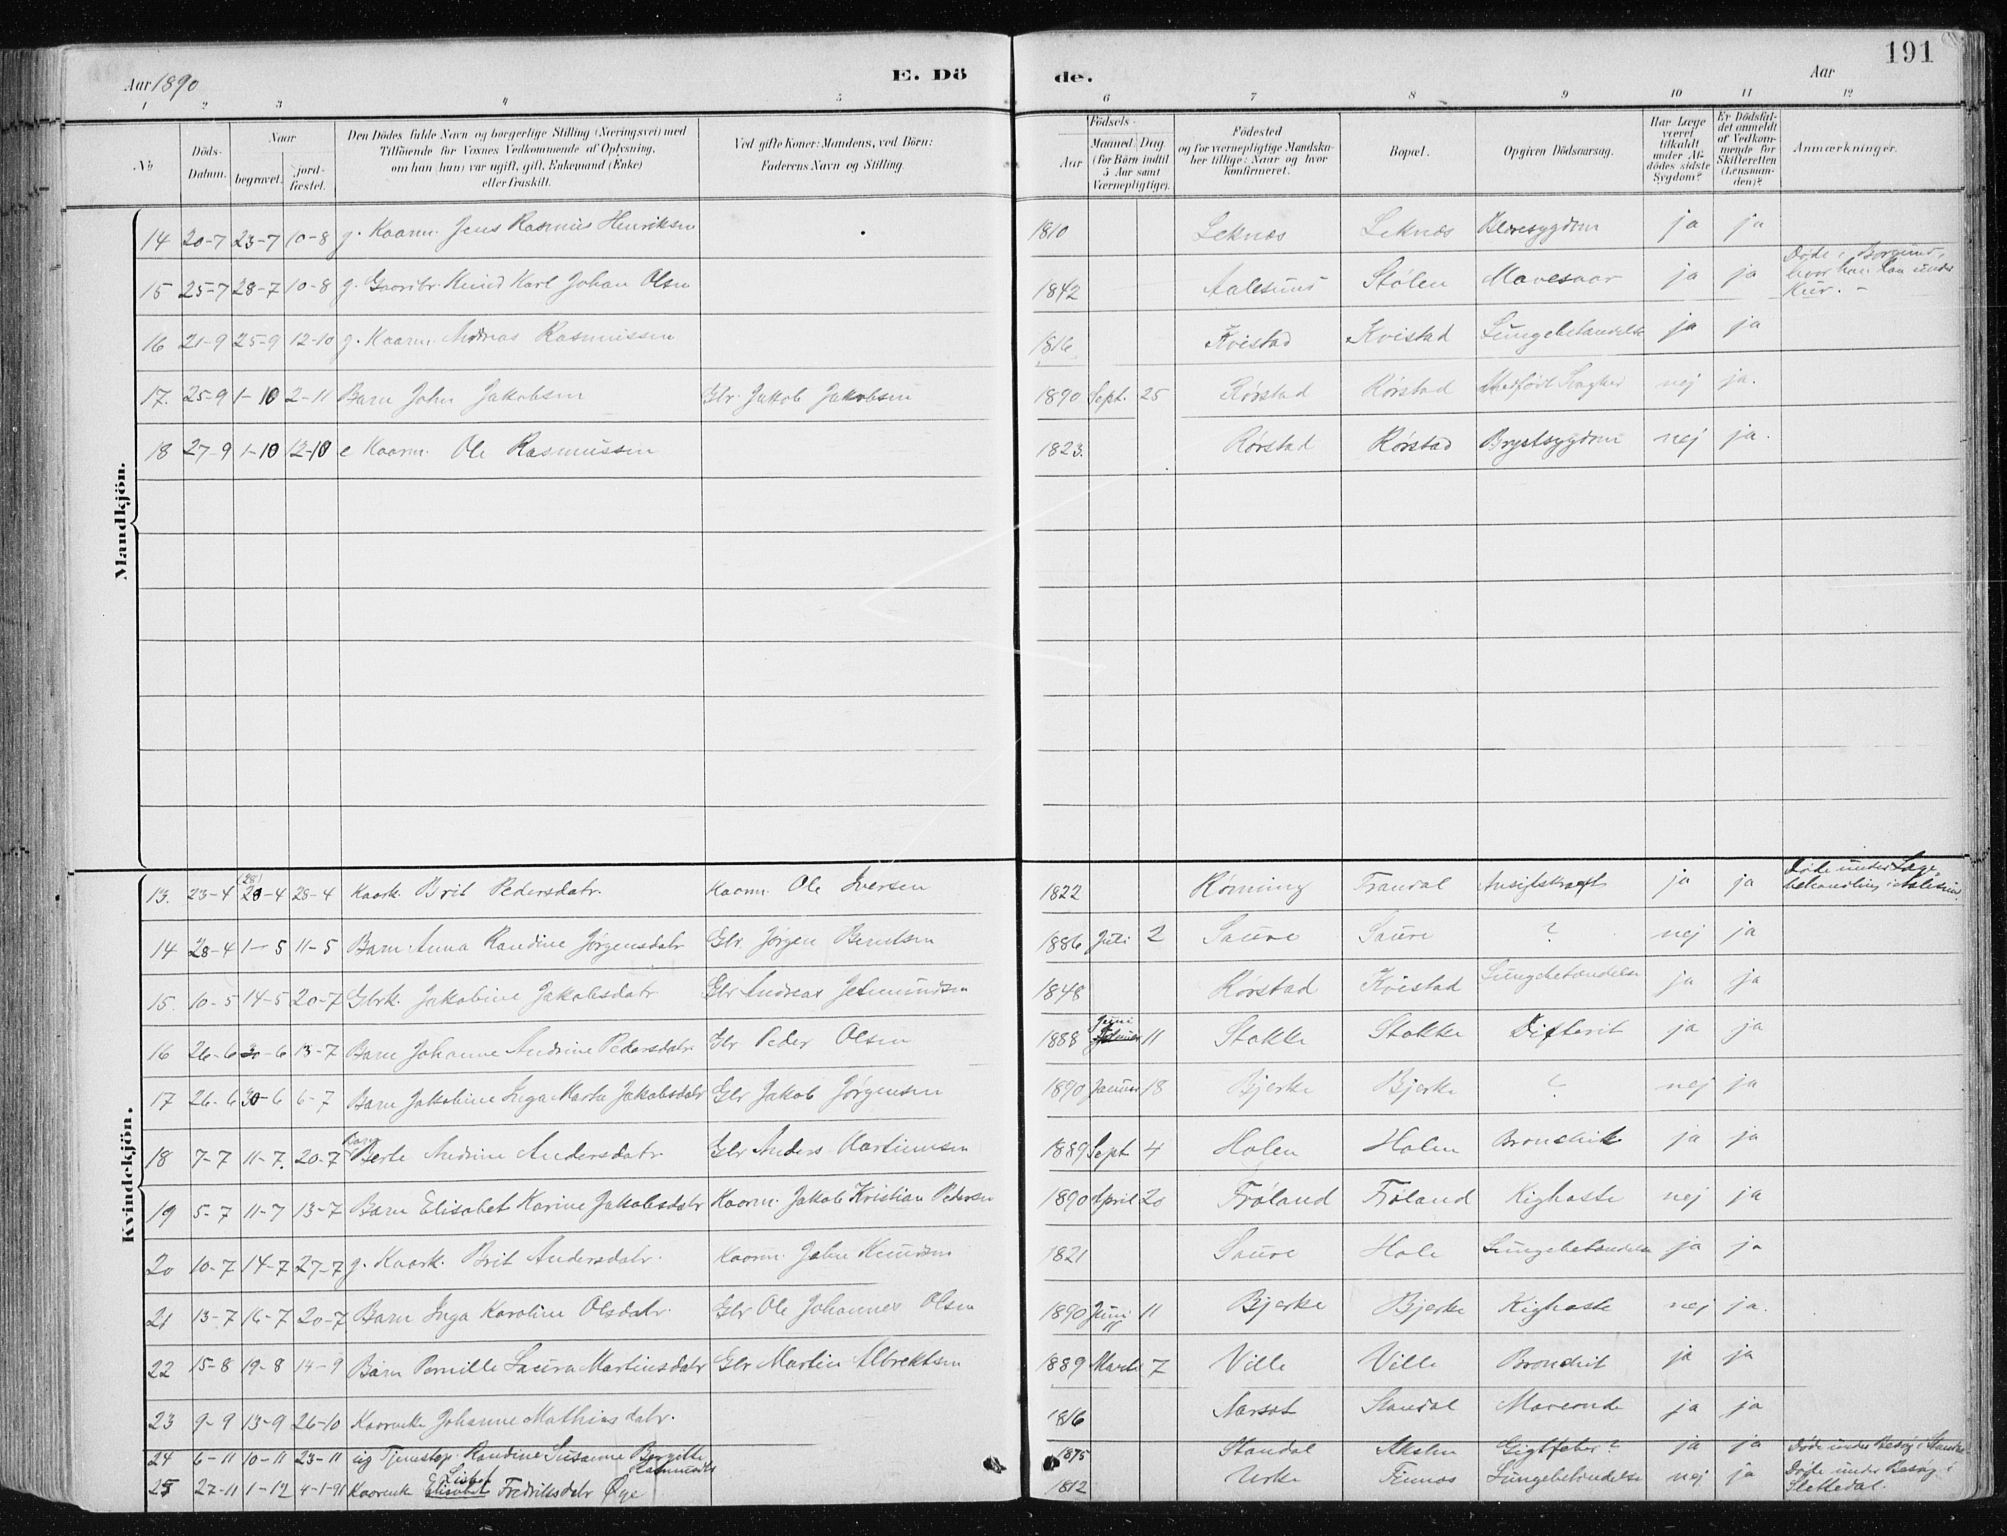 191
Aar 1890 E. Dö de. Aar
1 2 3 4 5 6 7 8 9 10 11 12
No
Döds-Datum.
Naar
begravet.
jord-fæstet.
Den Dödes fulde Navn og borgerlige Stilling (Næringsvei) med
Tilföiende for Voxnes Vedkommende af Oplysning,
om han (hun) var ugift, gift, Enkemand (Enke)
eller fraskilt.
Ved gifte Koner: Mandens, ved Börn:
Faderens Navn og Stilling.
Födsels-
Aar
Maaned (for Börn indtil 5 Aar samt Værnepligtige).
Dag
Födested
og for værnepligtige Mandska-
ber tillige: Naar og hvor
konfirmeret.
Bopæl.
Opgiven Dödsaarsag.
Har Læge været tilkaldt under Af-dödes sidste Sygdom?
Er Dödsfal-det anmeldt af Vedkom-mende for Skifteretten (Lensman-den)?
Anmærkninger.
Mandkjön.
14 20-7 23-7 10-8 g. Kaarm. Jens Rasmus Henriksen 1810 Leknæs Leknæs Blæresygdom ja ja
15 25-7 28-7 10-8 g. Gaardbr. Knud Karl Johan Olsen 1842 Aalesund Stølen Mavesaar ja ja Døde i Borgund, hvor han laa under Kur. -
16 21-9 25-9 12-10 g. Kaarm. Andreas Rasmussen 1816 Kvistad Kvistad Lungebetændelse ja ja
17. 25-9 1-10 2-11 Barn John Jakobsen Gbr. Jakob Jakobsen 1890 Sept. 25 Rørstad Rørstad Medfødt Svaghed nej ja.
18 27-9 1-10 12-10 e Kaarm. Ole Rasmussen 1823. Rørstad Rørstad Brystsygdom nej ja.
Kvindekjön.
13. 23-4 28-4 28-4 Kaark. Brit Pedersdatr. Kaarm. Ole Iversen 1822 Rørning Frandal Ansigtskræft ja ja Døde under Læge-behandling i Aalesund
14 28-4 1-5 11-5 Barn Anna Randine Jørgensdatr Gbr. Jørgen Berntsen 1886 Juli 2 Saure Saure ? nej ja
15. 10-5 14-5 20-7 Gbrk. Jakobine Jakobsdatr Gbr Andreas 1848 Rørstad Kvistad Lungebetændelse ja ja
16 26-6 30-6 13-7 Barn Johanne Andrine Pedersdatr Gbr Peder Olsen 1888 Juni 11 Stokke Stokke Difterit ja ja
17 26-6 30-6 6-7 Barn Jakobine Inga Marta Jakobsdatr Gbr Jakob Jørgensen 1890 Januar 18 Bjerke Bjerke ? nej ja
18 7-7 11-7. 20-7 Barn Berte Andrine Andersdatr Gbr Anders Martinussen 1889 Sept 4 Holen Holen Bronchit ja ja
19 5-7 11-7 13-7 Barn Elisabet Karine Jakobsdatr Kaarm. Jakob Kristian Pedersen 1890 April 20 Frøland Frøland Kighoste nej ja
20 10-7 14-7 27-7 g. Kaark. Brit Andersdatr. Kaarm. John Knudsen 1821 Saure Hole Lungebetændelse ja ja
21 13-7 16-7 20-7 Barn Inga Karoline Olsdatr. Gbr Ole Johannes Olsen 1890 Juni 11 Bjerke Bjerke Kighoste nej ja.
22 15-8 19-8 14-9 Barn Pernille Laura Martinsdatr Gbr Martin Albrektsen 1889 Marts 7 Ville Ville Bronchit ja ja
23 9-9 13-9 26-10 Kaarenke Johanne Mathiasdatr. 1816 Aarsæt Standal Maveonde ja ja
24 6-11 10-11 23-11 ug Tjenestep. Randine Susanne Bergitte Rasmusdtr 1875 Standal Aklen Gigtfeber? ja ja Døde under Besøg i Standal
25 27-11 1-12 4-1-91 Kaarenk Lisbet Elisabet Fredriksdatr Øye 1812 Urke Finnæs Lungebetændelse nej ja Døde under Besøg i Slettedal.